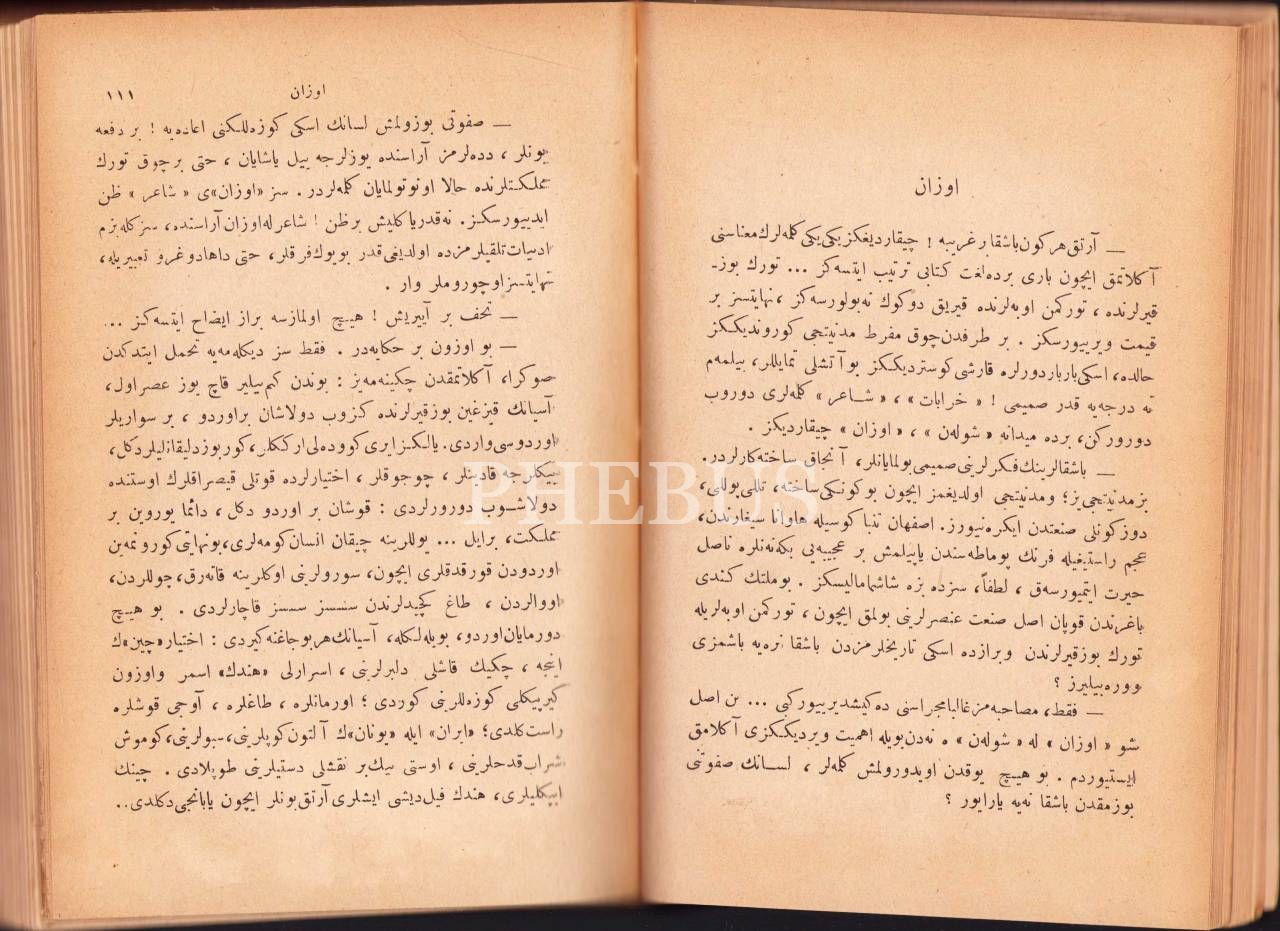 اوزان
— آرتق هركون باشقا بر غريبه ! چيقارديغكز يكى يكى كله‌لرك معناسنى
آكلاتمق ايچون بارى برده لغت كتابى ترتيب ايتسه‌كز ... تورك بوز-
قيرلرنده ، توركمن اوبه‌لرنده قيريق دوكوك نه بولورسه‌كز ، نهايتسز بر
قيمت ويرييورسكز . بر طرفدن چوق مفرط مدنيتجى كوروندیككز
حالده ، اسكى باربار دورلره قارشى كوسترديككز بو آتشلى تمايللر ، بيلمه‌م
نه درجه‌يه قدر صميمى ! « خرابات » ، « شاعر » كله‌لرى دوروب
دورورکن ، برده ميدانه « شوله‌ن » ، « اوزان » چيقارديكز .
— باشقالرينك فكرلرينى صميمى بولمايانلر ، آنجاق ساخته‌كارلردر .
بز مدنيتجى يز ؛ ومدنيتجى اولديغمز ايچون بوكونكى ساخته ، تللى پوللى ،
دوزكونلى صنعتدن ايكره‌نيورز . اصفهان تنباكوسيله هاوانا سيغارندن ،
عجم راستيغيله فرنك پوماطه‌سندن ياپيلمش بر عجيبه‌يى بكه‌نه‌نلره ناصل
حيرت ايتميورسه‌ق ، لطفاً ، سزده بزه شاشماماليسكز . بو ملتك كندى
باغرندن قوپان اصل صنعت عنصرلرينى بولمق ايچون ، توركمن اوبه‌لريله
تورك بوزقيرلرندن وبرازده اسكى تاريخلرمزدن باشقا نره‌يه باشمزى
ووره بيليرز ؟
— فقط ، مصاحبه‌مز غالبا مجراسنى ده‌كيشديرييور كى ... بن اصل
شو « اوزان » له « شوله‌ن » ه نه‌دن بويله اهميت ويرديككزى آكلامق
ايستيوردم . بو هيچ يوقدن اويدورولمش كله‌لر ، لسانك صفوتنى
بوزمقدن باشقا نه‌يه يارايور ؟
اوزان ١١١
— صفوتى بوزولمش لسانك اسكى كوزه‌للكنى اعاده‌يه ! بر دفعه
بونلر ، دده‌لرمز آراسنده يوزلرجه ييل ياشايان ، حتى بر چوق تورك
مملكتلرنده حالا اونوتولمايان كله‌لردر . سز « اوزان » ى « شاعر » ظن
ايدييورسكز . نه قدر ياكليش بر ظن ! شاعرله اوزان آراسنده ، سزكله بزم
ادبيات تلقيلرمزده اولديغى قدر بويوك فرقلر ، حتى داها دوغرو تعبيريله ،
نهايتسز اوچوروملر وار .
— تحف بر آييريش ! هيچ اولمازسه براز ايضاح ايتسه‌كز ...
— بو اوزون بر حكايه‌در . فقط سز ديكله‌مه‌يه تحمل ايتدكدن
صوكرا ، آكلاتمقدن چكينه‌مه‌يز : بوندن كيم بيلير قاچ يوز عصر اول ،
آسيانك قيزغين بوزقيرلرنده كزوب دولاشان بر اوردو ، بر سواريلر
اوردوسى واردى . يالكز ايرى كووده‌لى ارككلر ، كوربوز دليقانليلر دكل ،
بيكلرجه قادينلر ، چوجوقلر ، اختيارلرده قوتلى قيصراقلرك اوستنده
دولاشوب دورورلردى : قوشان بر اوردو دكل ، دائما يوروين بر
مملكت ، بر ايل ... يوللرينه چيقان انسان كومه‌لرى ، بو نهايتى كورونمه‌ين
اوردودن قورقدقلرى ايچون ، سورولرينى اوكلرينه قاته‌رق ، چوللردن ،
اووالردن ، طاغ كچيدلرندن سسسز سسسز قاچارلردى . بو هيچ
دورمايان اوردو ، بويله‌لكله ، آسيانك هر بوجاغنه كيردى : اختيار « چين » ك
اينجه ، چكيك قاشلى دلبرلرينى ، اسرارلى « هند » ك اسمر واوزون
كيرپيكلى كوزه‌للرينى كوردى ؛ اورمانلره ، طاغلره ، آوجى قوشلره
راست كلدى ؛ « ايران » ايله « يونان » ك آلتون كوپلرينى ، سبولرينى ، كوموش
شراب قدحلرينى ، اوستى بيك بر نقشلى دستيلرينى طوپلادى . چينك
ايپكليلرى ، هندك فيل ديشى ايشلرى آرتق بونلر ايچون يابانجى دكلدى ..
PHEBUS